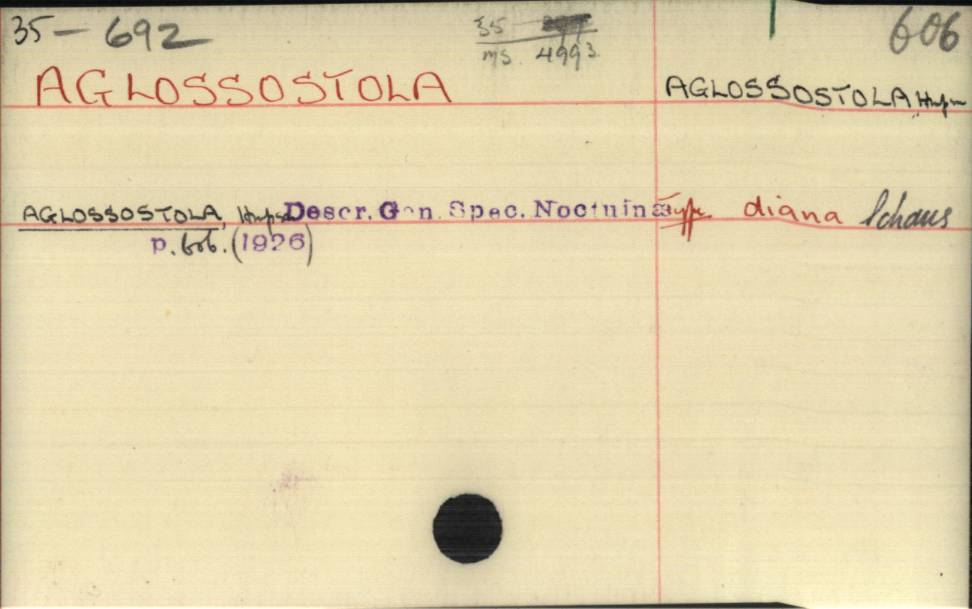 35 — 692
35
ms. 4993
606
AGLOSSOSTOLA
AGLOSSOSTOLA Hmpsn
AGLOSSOSTOLA, Hmpsn Descr. Gen. Spec. Noctuinae Type diana Schaus
p. 606. (1926)